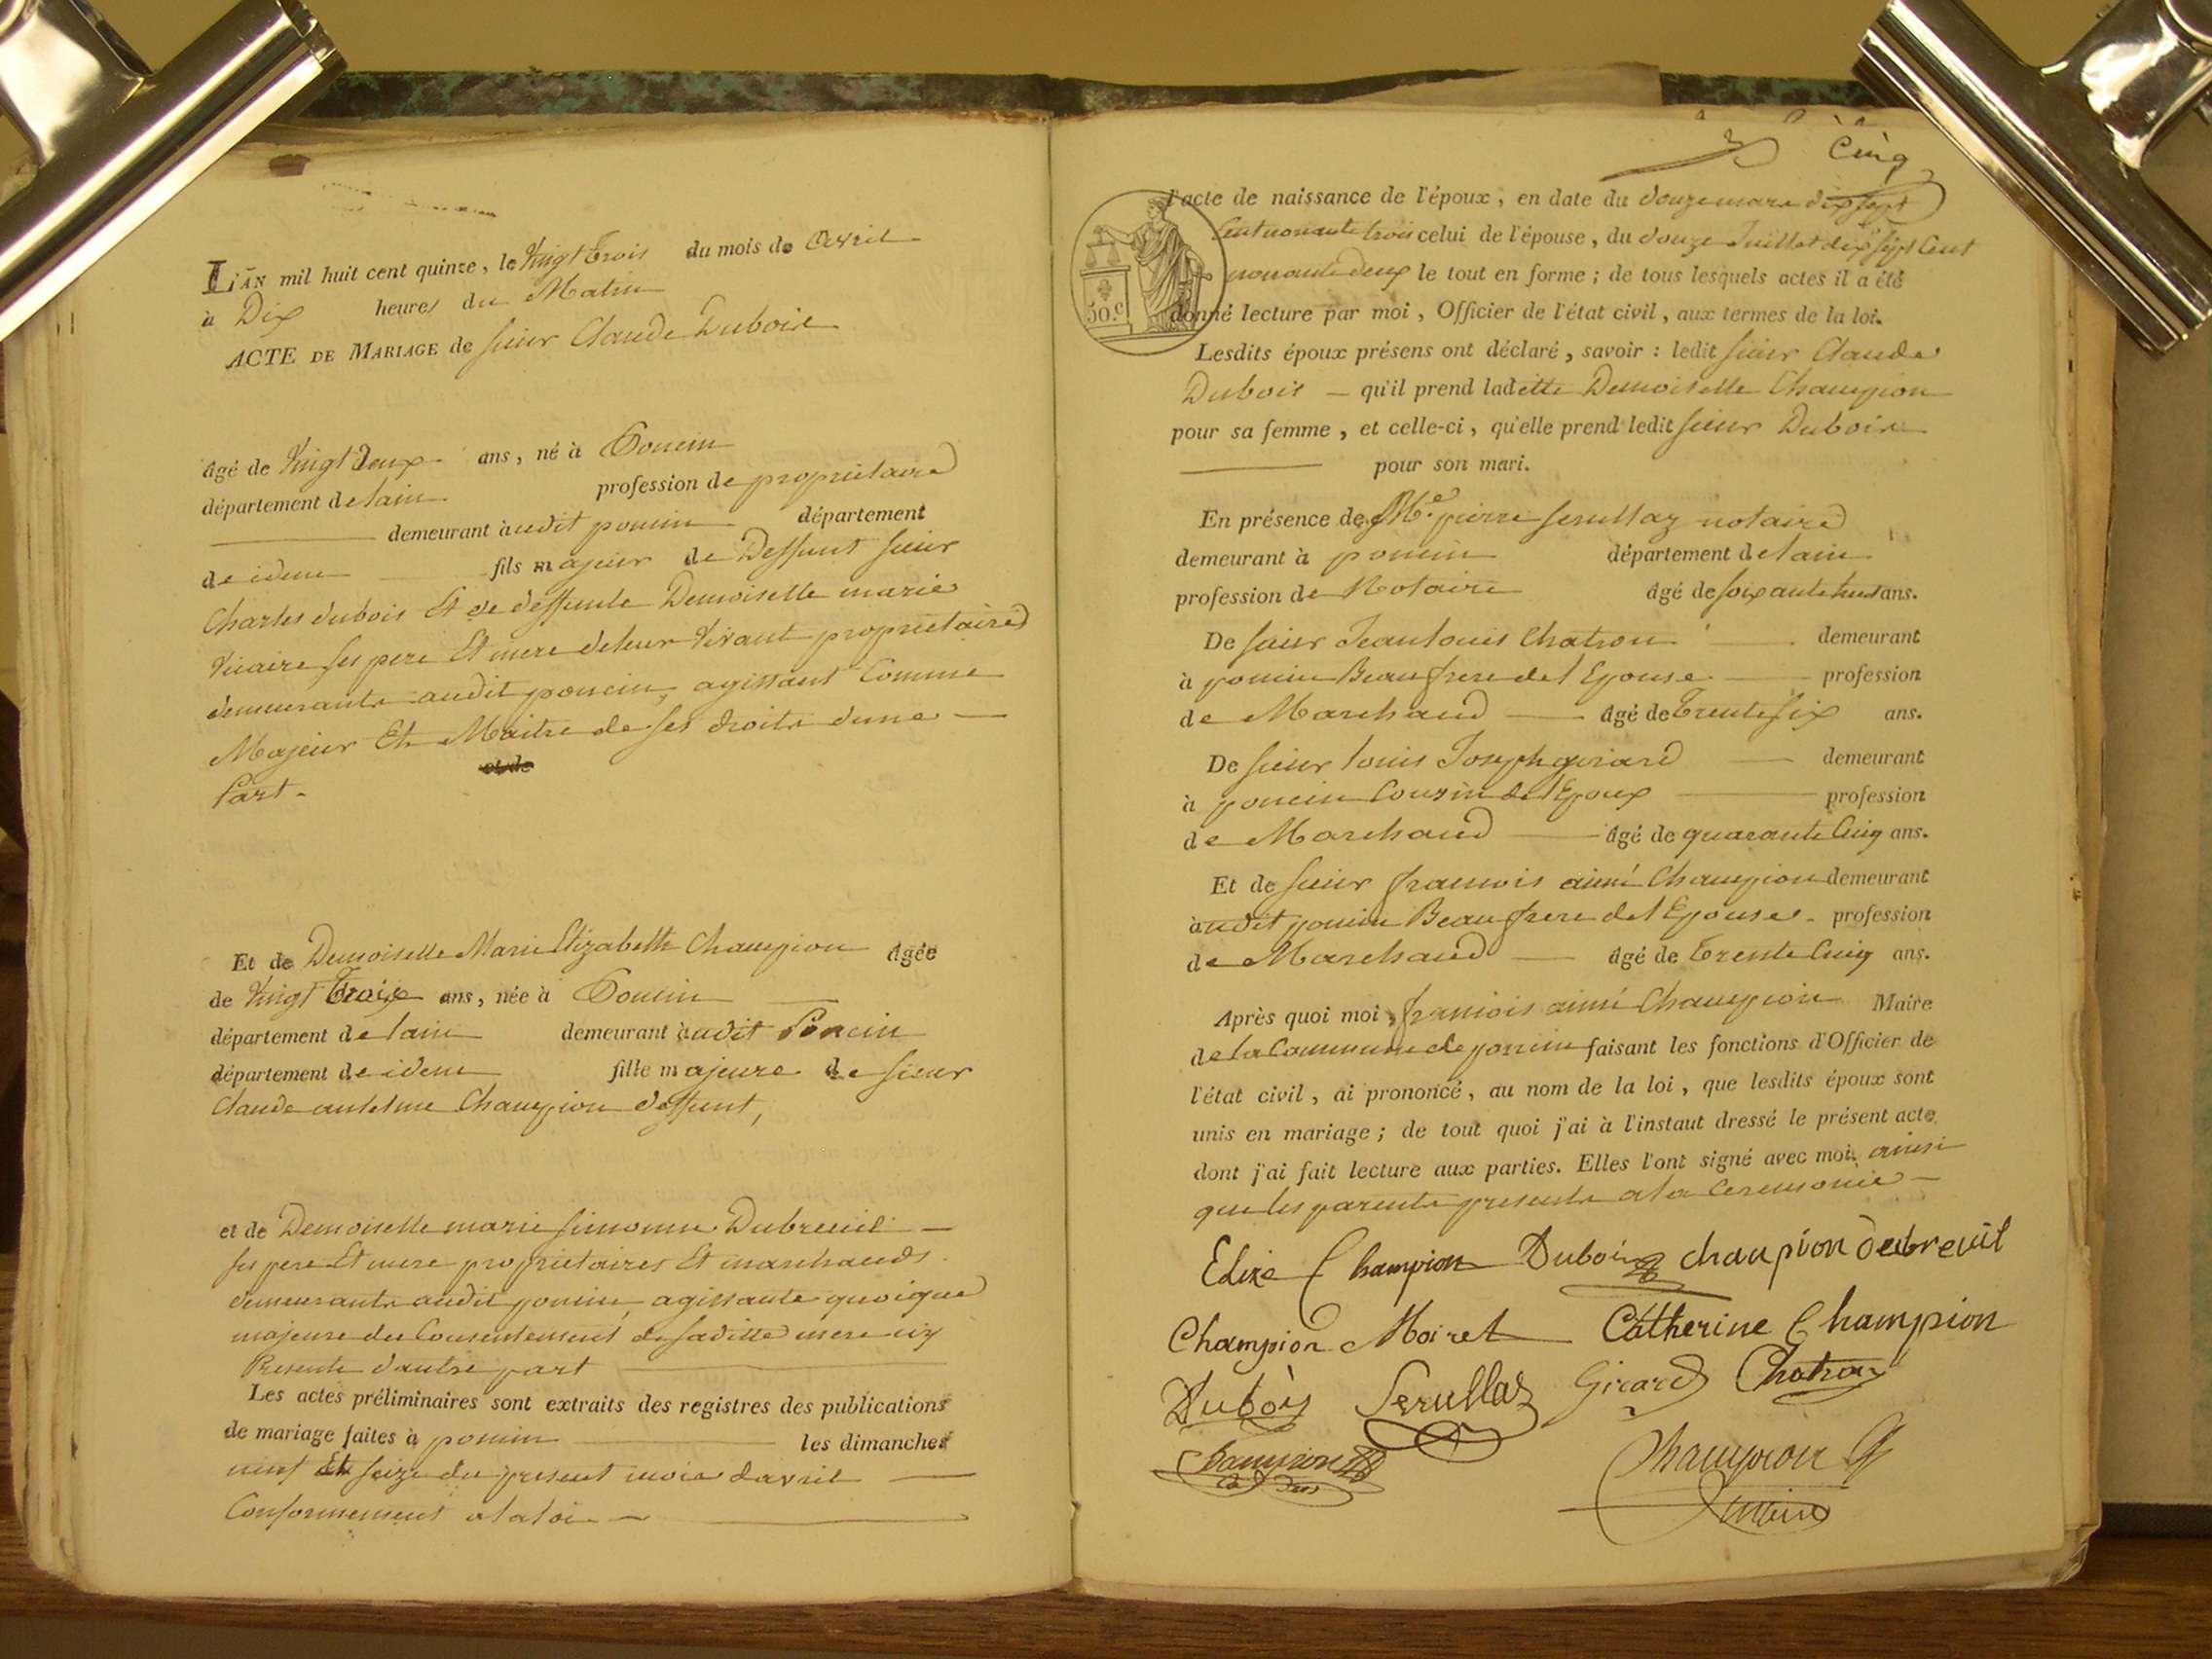 L'AN mil huit cent quinze, le Vingt Trois du mois de Avril
à Dix heures du Matin
ACTE DE MARIAGE de sieur Claude Dubois
âgé de Vingt Deux ans, né à Poncin
département de lain profession de proprietaire
demeurant audit poncin département
de idem fils majeur de Deffunt sieur
Charles dubois Et de deffunte Demoiselle marie
Vicaire ses pere Et mere de leur Vivant proprietaires
demeurants audit poncin, agissant Comme
Majeur Et Maitre de ses droits d'une
et de
Part.
Et de Demoiselle Marie Elizabeth Champion âgée
de Vingt Trois ans, née à Poncin
département de lain demeurant audit Poncin
département de idem fille majeure de sieur
Claude antelme Champion deffunt,
et de Demoiselle marie simonne Dubreuil
ses pere Et mere proprietaires Et marchands
demeurants audit poncin, agissante quoique
majeure du Consentement de saditte mere icy
Presente d'autre part
Les actes préliminaires sont extraits des registres des publications
de mariage faites à poncin les dimanches
neuf Et seize du present mois davril
Conformement a la loi
Cinq
l'acte de naissance de l'époux, en date du douze mars dix sept
Cent nonante trois celui de l'épouse, du douze Juillet dix sept Cent
nonante deux le tout en forme ; de tous lesquels actes il a été
50.c
donné lecture par moi, Officier de l'état civil, aux termes de la loi.
Lesdits époux présens ont déclaré, savoir : ledit sieur Claude
Dubois qu'il prend ladette Demoiselle Champion
pour sa femme, et celle-ci, qu'elle prend ledit sieur Dubois
pour son mari.
En présence de Me. pierre serullaz notaire
demeurant à poncin département de lain
profession de Notaire âgé de soixante huit ans.
De sieur Jean louis Chatron demeurant
à poncin Beaufrere de l'Epouse profession
de Marchand âgé de Trente six ans.
De sieur louis Joseph girard demeurant
à poncin Cousin de l'Epoux profession
de Marchand âgé de quarante Cinq ans.
Et de sieur francois aimé Champion demeurant
audit poncin Beaufrere de l'Epouse profession
de Marchand âgé de Trente Cinq ans.
Après quoi moi, francois aimé Champion Maire
de la Commune de poncin faisant les fonctions d'Officier de
l'état civil, ai prononcé, au nom de la loi, que lesdits époux sont
unis en mariage ; de tout quoi j'ai à l'instaut dressé le présent acte
dont j'ai fait lecture aux parties. Elles l'ont signé avec moi ainsi
que les parents presents a la Ceremonie
Elize Champion Dubois chanpion dubreuil
Champion Moiret Catherine Champion
Dubois Serullaz Girard Chatron
Champion
Champion
maire